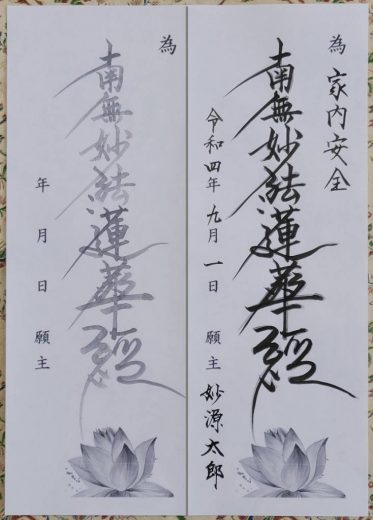 為 家内安全
南無妙法蓮華経
令和四年 九月 一日 願主 妙源太郎
為
南無妙法蓮華経
年 月 日 願主